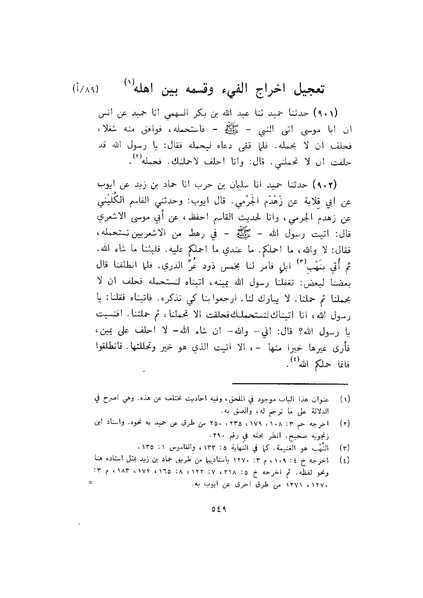 تعجيل اخراج الفيء وقسمه بين اهله(١) (٨٩/أ)
(٩٠١) حدثنا حميد ثنا عبد الله بن بكر السهمي انا حميد عن انس
ان ابا موسى اتى النبي - ﷺ - فاستحمله، فوافق منه شغلا،
فحلف ان لا يحمله. فلما قفى دعاه ليحمله فقال: يا رسول الله قد
حلفت ان لا تحملني. قال: وانا احلف لاحملنك. فحمله(٢).
(٩٠٢) حدثنا حميد انا سليمان بن حرب انا حماد بن زيد عن ايوب
عن ابي قلابة عن زهدم الجرمي. قال ايوب: وحدثني القاسم الكُلَيْبي
عن زهدم الجرمي، وانا لحديث القاسم احفظ، عن أبي موسى الاشعري
قال: اتيت رسول الله - ﷺ - في رهط من الاشعريين نستحمله،
فقال: لا والله، ما احملكم. ما عندي ما احملكم عليه. فلبثنا ما شاء الله.
ثم أُتِيَ بنَهْب(٣) ابل فامر لنا بخمس ذود غُرِّ الذري. فلما انطلقنا قال
بعضنا لبعض: تغفلنا رسول الله يمينه، اتيناه لنستحمله فحلف ان لا
يحملنا ثم حملنا. لا يبارك لنا. ارجعوا بنا كي نذكره. فاتيناه فقلنا: يا
رسول الله، انا اتيناك لنستحملك فحلفت الا تحملنا، ثم حملتنا. افنسيت
يا رسول الله؟ قال: اني -والله- ان شاء الله- لا احلف على يمين،
فأرى غيرها خيرا منها -، الا اتيت الذي هو خير وتحللتها. فانطلقوا
فانما حملكم الله(٤).
(١) عنوان هذا الباب موجود في الملحق، وفيه احاديث مختلف عن هذه. وهي اصرح في
الدلالة على ما ترجم له، والصق به.
(٢) اخرجه حم ٣: ١٠٨، ١٧٩، ٢٣٥، ٢٥٠ من طرق عن حميد به نحوه. واسناد ابن
زنجويه صحيح. انظر بحثه في رقم ٢٩٠.
(٣) النَّهْب هو الغنيمة. كما في النهاية ٥: ١٣٣، والقاموس ١: ١٣٥.
(٤) اخرجه خ ٤: ١٠٩، م ٣: ١٢٧٠ باسناديهما من طريق حماد بن زيد بمثل اسناده هنا
ونحو لفظه. ثم اخرجه خ ٥: ٢١٨، ٧: ١٢٢، ٨: ١٦٥، ١٧٢، ١٨٣، م ٣:
١٢٧٠، ١٢٧١ من طرق اخرى عن ايوب به.
٥٤٩